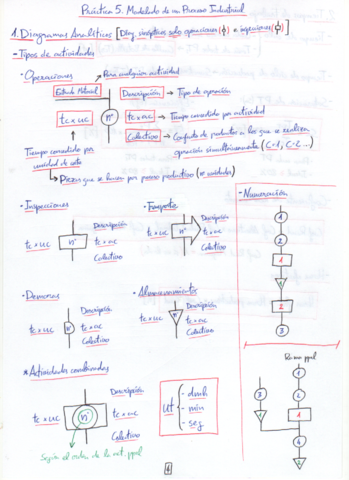 Práctica 5. Modelado de un Proceso Industrial
1. Diagramas Analíticos [Diag. sinópticos solo operaciones (ϕ) e inspecciones (ϕ)]
- Tipos de actividades
· Operaciones
Para cualquier actividad
Estado Material
Descripción → Tipo de operación
tc x uc
nº
tc x uc → Tiempo consumido por actividad
Colectivo → Conjunto de productos a los que se realizan
operación simultáneamente (C-1, C-2...)
Tiempo consumido por
unidad de coste
Piezas que se hacen por proceso productivo (nº unidades)
· Inspecciones
tc x uc
nº
Descripción
tc x uc
Colectivo
· Transporte
tc x uc
nº
Descripción
tc x uc
Colectivo
- Numeración
1
2
1
1
2
3
· Demoras
tc x uc
Descripción
tc x uc
Colectivo
· Almacenamiento
tc x uc
Descripción
tc x uc
Colectivo
* Actividades combinadas
tc x uc
nº
Descripción
tc x uc
Colectivo
Según el orden de la act. ppal
ut
- dmh
- min
- seg
ppal
1
3
2
1
1
4